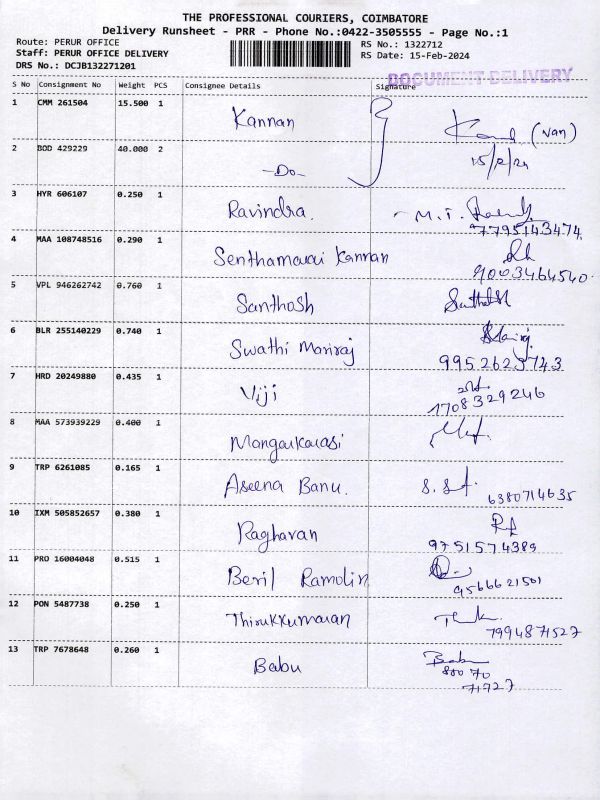 THE PROFESSIONAL COURIERS, COIMBATORE
Delivery Runsheet - PRR - Phone No.:0422-3505555 - Page No.:1
Route: PERUR OFFICE
RS No.: 1322712
Staff: PERUR OFFICE DELIVERY
RS Date: 15-Feb-2024
DRS No.: DCJB132271201
DOCUMENT DELIVERY
S No Consignment No Weight PCS Consignee Details Signature
1 CMM 261504 15.500 1 Kannan (van)
2 BOD 429229 40.000 2 -Do- 15/2/24
3 HYR 606107 0.250 1 Ravindra. M. I.
7795143474
4 MAA 108748516 0.290 1 Senthamarai Kannan
9003464540
5 VPL 946262742 0.760 1 Santhosh
6 BLR 255140229 0.740 1 Swathi Moniraj
9952623743
7 HRD 20249880 0.435 1 Viji
1708329246
8 MAA 573939229 0.400 1 Mangaikarasi
9 TRP 6261085 0.165 1 Aseena Banu.
6380714635
10 IXM 505852657 0.380 1 Raghavan
9751574389
11 PRO 16004048 0.515 1 Beril Ramolin
9566621501
12 PON 5487738 0.250 1 Thirukkumaran
7994871527
13 TRP 7678648 0.260 1 Babu Babu
80070
71727